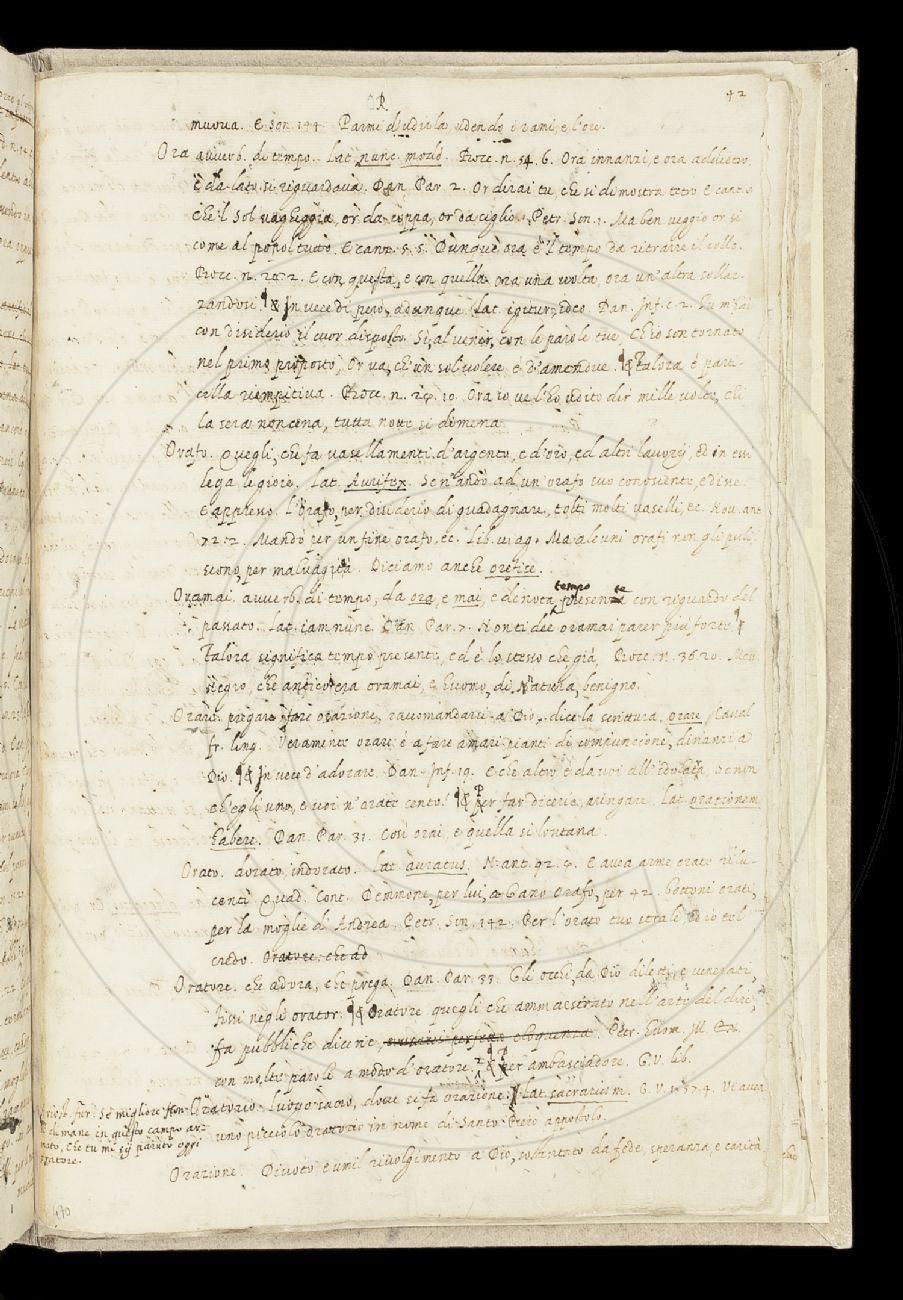 OR
42
muova. E Son. 144. Parmi d'udirla, udendo i rami, e l'ore.
Ora avverb. di tempo. Lat. nunc. modo. Bocc. n. 54. 6. Ora innanzi, e ora addietro,
e da lato si riguardava. Dan. Par. 2. Or dirai tu, che si dimostra tetro E cant.
che 'l Sol vagheggia, or da coppa, or da ciglio. Petr. Son. 1. Ma ben veggio or sì
come al popol tutto. E canz. 5. 5. Dunque ora è 'l tempo da ritrarre il collo.
Bocc. n. E con questa, e con quella ora una volta, ora un'altra sollaz-
zandosi. ¶ & In vece di però, adunque. Lat. igitur, ideo. Dan. Inf. c. 2. Tu m'hai
con disiderio il cuor disposto Sì, al venir, con le parole tue, Ch'io son tornato
nel primo proposto, Or va, ch'un sol volere è d'amendue. ¶ & Talora è parti-
cella riempitiva. Bocc. n. Ora io ve l'ho udito dir mille volte, chi
la sera non cena, tutta notte si dimena.
Orafo. Quegli, che fa vasellamenti d'argento, e d'oro, ed altri lavorij, ed in essi
lega le gioie. Lat. Aurifex. Se n'andò ad un'orafo suo conoscente, e disse.
E appresso. L'orafo, per disiderio di guadagnare, tolti molti vaselli, ec. Nov. ant.
Mandò per un fine orafo, ec. Lib. viag. Ma alcuni orafi non gli puli-
scono, per malvagità. Diciamo anche orefice.
Oramai. avverb. di tempo, da ora, e mai, e denota tempo presente con riguardo del
passato. Lat. iam nunc. Dan. Par. 7. Non ti dee oramai parer più forte ¶ &
Talora significa tempo presente, ed è lo stesso che già, Bocc. n. 36. 20. Mes.
Negro, che antico era oramai, e huomo, di Natura, benigno.
Orare. pregare fare orazione, raccomandarsi a Dio, dice la scrittura, orare, Caval.
fr. ling. Veramente orare è a fare amari pianti di compunzione, dinanzi a
Dio. ¶ & In vece d'adorare. Dan. Inf. 19. E che altro è da voi all'idolatre, Se non
ch'egli uno, e voi n'orate cento! ¶ & Per far dicerie, aringare. Lat. orationem
habere. Dan. Par. 31. Così orai, e quella sì lontana.
Orato. dorato, indorato. Lat. auratus. N. ant. E avea arme orate rilu-
centi. Quad. Cont. Demmone, per lui, a Gano Orafo, per 42. bottoni orati,
per la moglie di Andrea. Petr. Son. 142. Per l'orato tuo strale ed io sol
credo. Oratore. che ad
Oratore. che adora, che prega. Dan. Par. 33. Gli occhi, da Dio diletti, e venerati,
Fissi negli orator. ¶ & Oratore quegli che ammaestrato nell'arte del dire,
fa pubbliche dicerie, eloquenza. Petr. huom. ill.
con molte parole a modo d'oratore. ¶ & Per ambasciadore. G. V. lib.
Oratorio. Luogo sacro, dove si fa orazione. Lat. sacrarium. G. V. 1. 57. 4. Vi avea
uno piccolo Oratorio in nome di Santo Piero appostolo.
Orazione. Divoto e umil rivolgimento a Dio, sostentato da fede, speranza, e carità
Ariost. fur. Se migliore
di mane in questo campo ar-
mato, che tu mi sij paruto oggi
oratore.